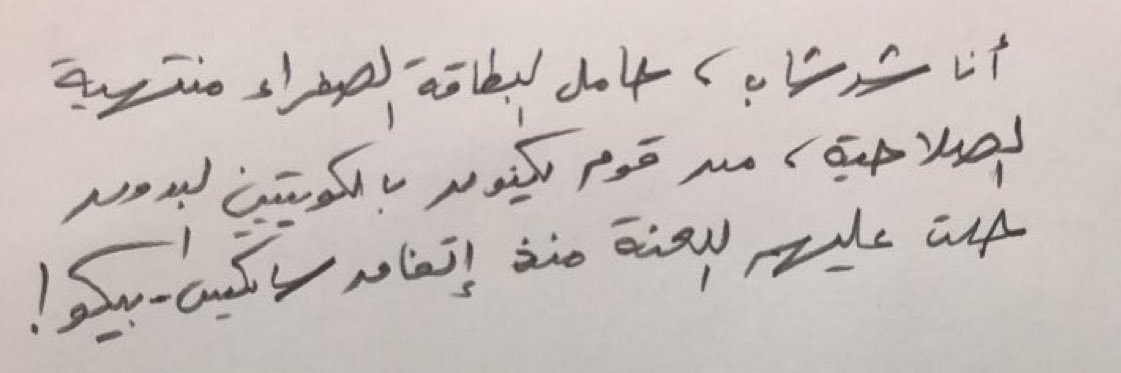 أنا شرشاب، حامل البطاقة الصفراء منتهية
الصلاحية، من قوم يكنون بالكويتيين البدون
حلت عليهم اللعنة منذ إتفاق سايكس-بيكو!